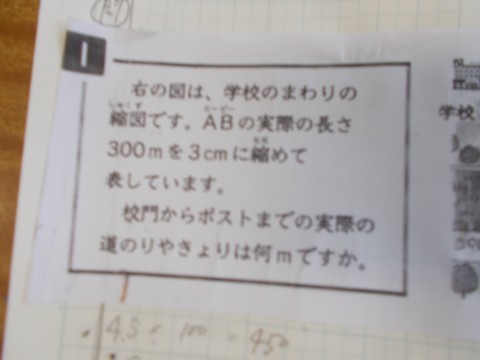 1
右の図は、学校のまわりの
縮図です。ABの実際の長さ
300mを3cmに縮めて
表しています。
校門からポストまでの実際の
道のりやきょりは何mですか。
学校
4.5 × 100 = 450